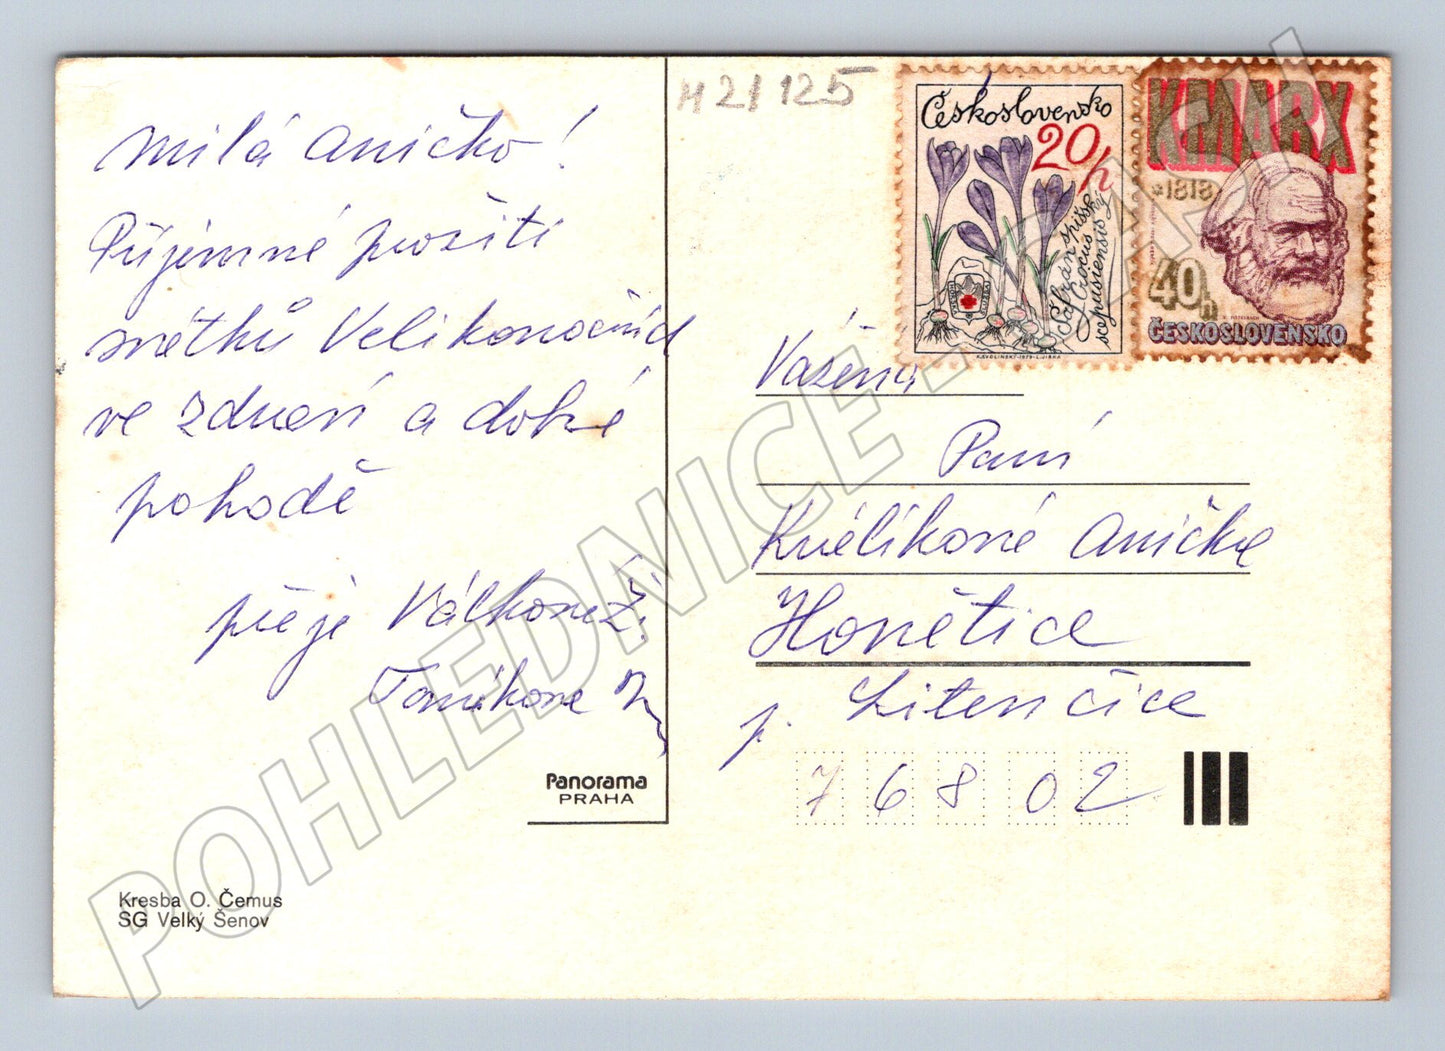 Milá Aničko!
Příjemné prožití
svátků Velikonočních
ve zdraví a dobré
pohodě
přeje Válkova Ž.
Tomíkova
Panorama
PRAHA
Kresba O. Čemus
SG Velký Šenov
H21125
Československo
20h
Šafrán spišský
Crocus
scepusiensis
KAVOLINSKÝ-1979-L.JIRKA
KMARX
*1818
40h
ČESKOSLOVENSKO
Vážená
Paní
Králíková Anička
Honětice
p. Litenčice
76802
POHLEDNICE